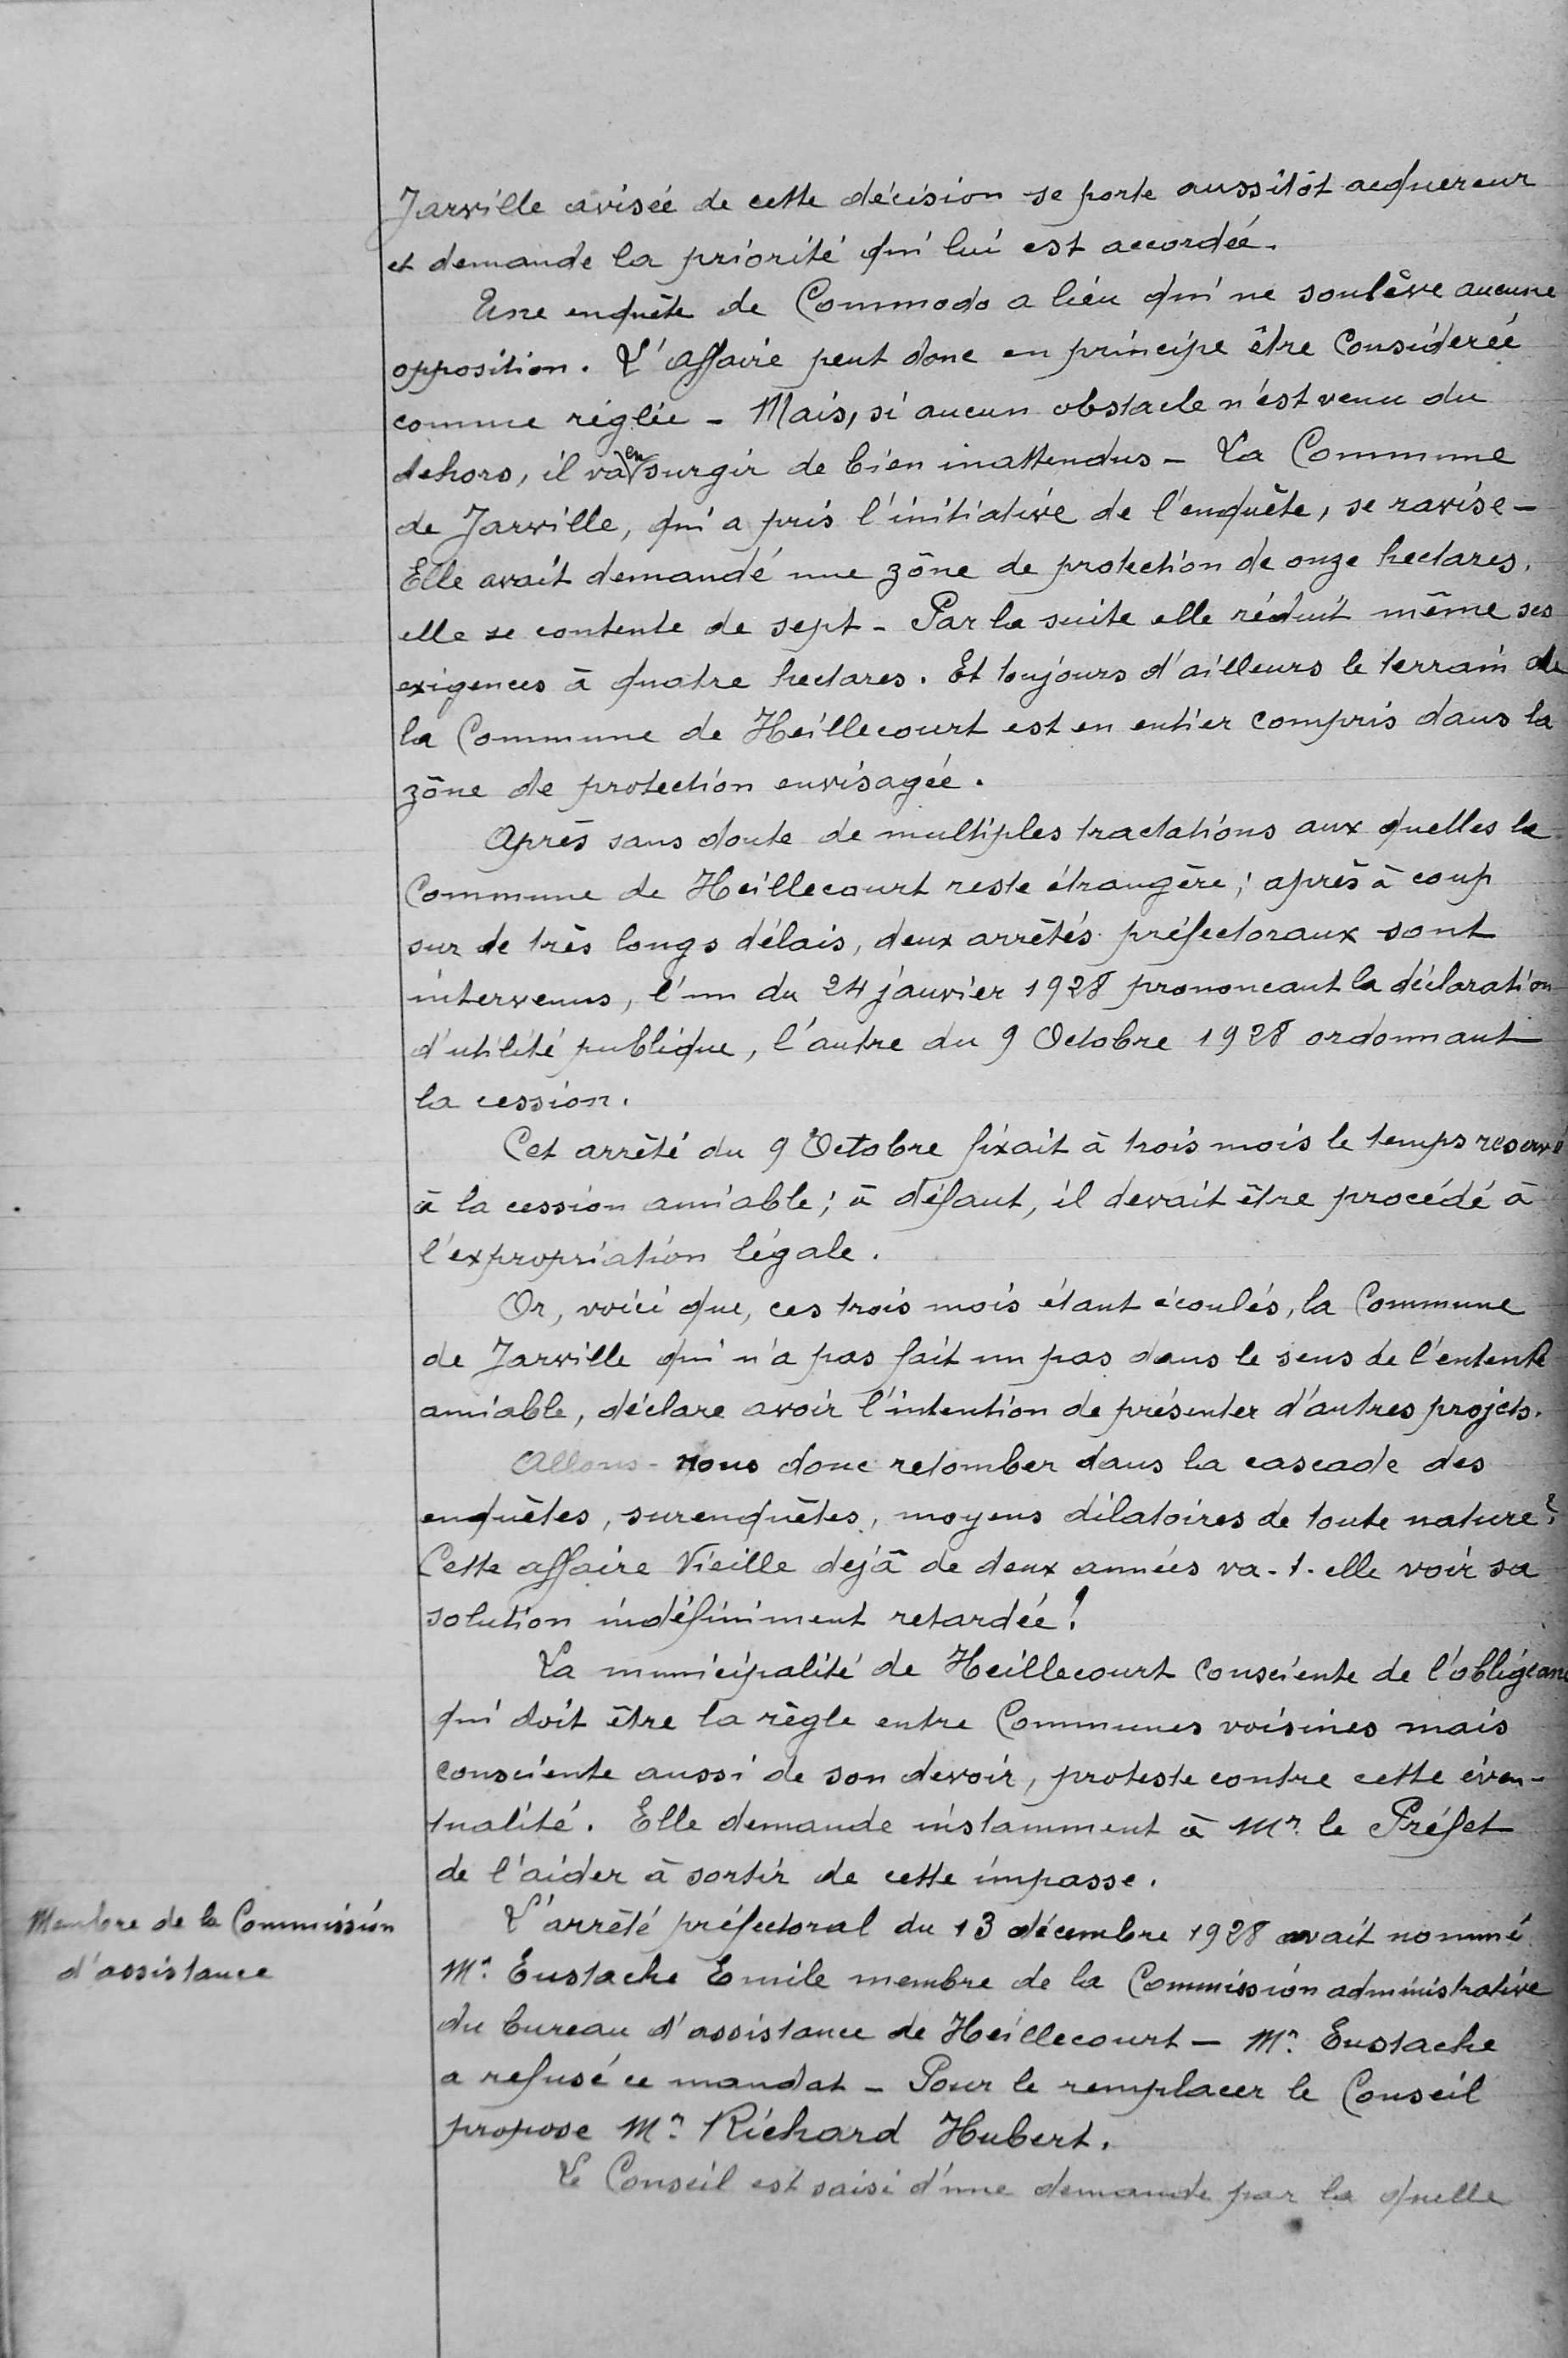 Jarville avisée de cette décision se porte aussitôt acquereur
et demande la priorité qui lui est accordée.
Une enquête de Commodo a lieu qui ne soulève aucune
opposition. L'affaire peut donc en principe être Considerée
comme réglée - Mais, si aucun obstacle n'est venu du
dehors, il va en surgir de bien inattendus - La Commune
de Jarville, qui a pris l'initiative de l'enquête, se ravise -
Elle avait demandé une zône de protection de onze hectares.
elle se contente de sept - Par la suite elle réduit même ses
exigences à quatre hectares. Et toujours d'ailleurs le terrain de
la Commune de Heillecourt est en entier compris dans la
zône de protection envisagée.
Après sans doute de multiples tractations aux quelles la
Commune de Heillecourt reste étrangère; après à coup
sur de très longs délais, deux arrêtés préfectoraux sont
intervenus, l'un du 24 janvier 1928 prononcant la déclaration
d'utilité publique, l'autre du 9 Octobre 1928 ordonnant
la cession.
Cet arrêté du 9 Octobre fixait à trois mois le temps reservé
à la cession amiable; à défaut, il devait être procédé à
l'expropriation légale.
Or, voici que, ces trois mois étant écoulés, la Commune
de Jarville qui n'a pas fait un pas dans le sens de l'entente
amiable, déclare avoir l'intention de présenter d'autres projets.
Allons-nous donc retomber dans la cascade des
enquêtes, surenquêtes, moyens dilatoires de toute nature?
Cette affaire Vieille dejà de deux années va-t-elle voir sa
solution indéfiniment retardée?
La municipalité de Heillecourt Consciente de l'obligeance
qui doit être la règle entre Communes voisines mais
consciente aussi de son devoir, proteste contre cette éven-
tualité. Elle demande instamment à Mr le Préfet
de l'aider à sortir de cette impasse.
Membre de la Commission
d'assistance
L'arrêté préfectoral du 13 décembre 1928 avait nommé
Mr Eustache Emile membre de la Commission administrative
du bureau d'assistance de Heillecourt - Mr Eustache
a refusé ce mandat - Pour le remplacer le Conseil
propose Mr Richard Hubert.
Le Conseil est saisi d'une demande par la quelle